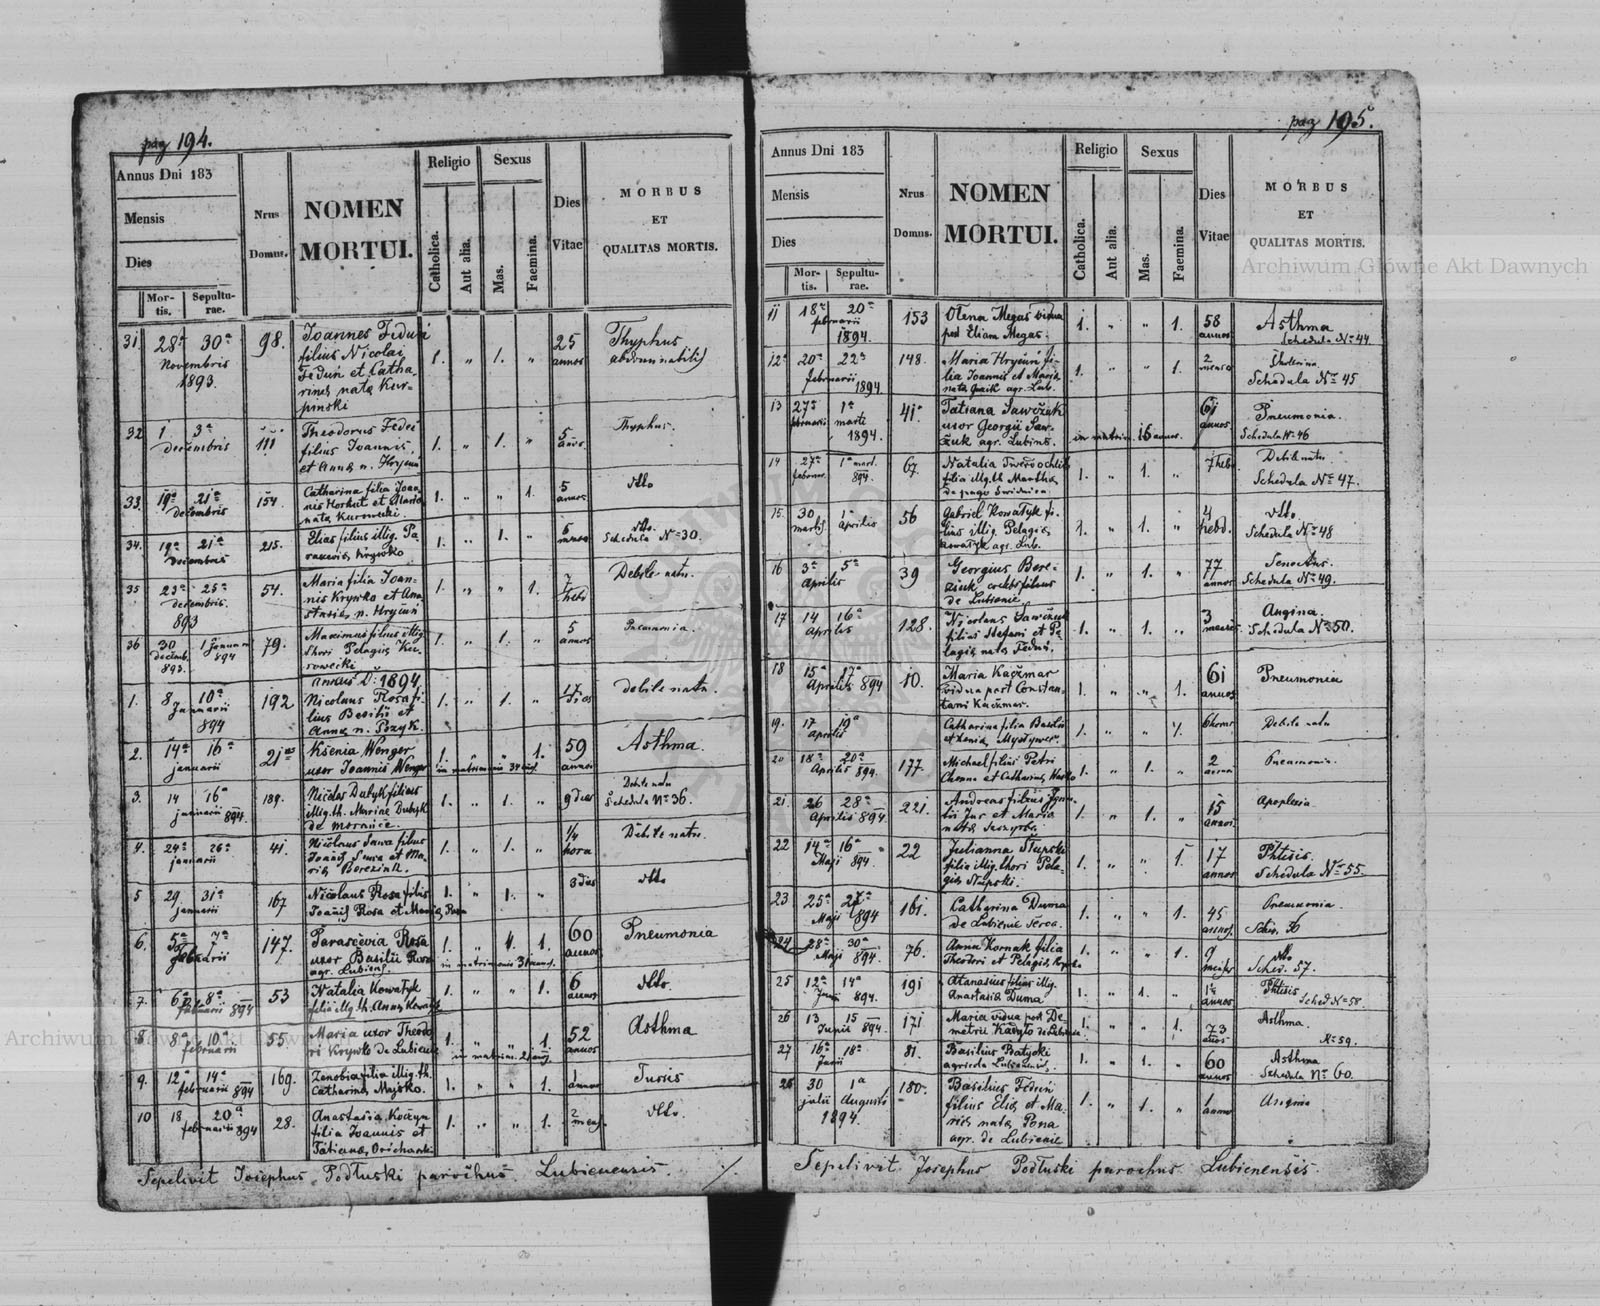 pag 194.
Annus Dni 183
Mensis
Dies
Mor-
tis.
Sepultu-
rae.
Nrus
Domus.
NOMEN
MORTUI.
Religio
Catholica.
Aut alia.
Sexus
Mas.
Faemina.
Dies
Vitae
MORBUS
ET
QUALITAS MORTIS.
31 28a 30a 98. Joannes Fedun 1. " 1. " 25 Thyphus
Novembris filius Nicolai annos abdominalis
1893. Fedun et Catha
rina nata Kur-
pinski
32 1 3a 111 Theodorus Fedun 1. " 1. " 5 Thyphus.
decembris filius Joannis
et Anna n. Hrycun
33. 19a 21a 154. Catharina filia Joan- 1. " " 1. 5 dtto
decembris nis Horhut et Maria annos
nata Kurowecki.
34. 19a 21a 215. Elias filius illig. Pa 1. " 1. " dtto.
decembris rascevia Krywko Schedula No 30.
35 23a 25a 54. Maria filia Joan- 1. " " 1. 7 Debile natu.
decembris nis Krywko et Ana hebd
893 stasia n. Hrycun
36 30 1 Januar 79. Maximus filius illig. 1. " 1. " 5 Pneumonia.
decemb. 894 thori Pelagia Ku- annos
893. rowecki
annus D. 1894
1. 8 10a 192 Nicolaus Rosa fi 1. " 1. " dies debile natu.
Januarii lius Basilii et
894 Anna n. Pozyk.
2. 14a 16a 21 Ksenia Wenger 1. " " 1. 59 Asthma.
januarii uxor Joannis Wenger in matrimonio annos
3. 14 16a 189. Nicolas Dubyk filius 1. " 1. " 9 dies Debile natu
januarii 894. illig. th. Mariae Dubyk Schedula No 36.
de moranice
4. 24a 26a 41. Nicolaus Sawa filius 1. " 1. " 1/4 Debile natu.
januarii Joannis Sawa et Ma- hora
ria Berezink.
5 29 31a 167 Nicolaus Rosa filius 1. " 1. " 3 dies dtto
januarii Joannis Rosa et Maria Rosa
6. 5a 7a 147. Parascevia Rosa 1. " 1. 60 Pneumonia
Februarii uxor Basilii Rosa in matrimonio 31 annos. annos
agr. Lubiens.
7. 6a 8a 53 Natalia Kowatyk 1. " " 1. 6 dtto.
februarii 894 filia illig. th. Anna Kowatyk annos
8. 8a 10a 55. Maria uxor Theodo 1. " " 1. 52 Asthma
februarii ri Krywko de Lubienie in matrim. annos
9. 12a 14a 169. Zenobia filia illig. th. 1. " " 1. 1 Tussis
februarii 894 Catharina Majsko. annos
10 18 20a 28. Anastasia Koczyn 1. " " 1. 2 dtto.
februarii 894 filia Joannis et mens.
Tatiana,
Sepelivit Josephus Podłuski parochus Lubienensis.
pag 195.
Annus Dni 183
Mensis
Dies
Mor-
tis.
Sepultu-
rae.
Nrus
Domus.
NOMEN
MORTUI.
Religio
Catholica.
Aut alia.
Sexus
Mas.
Faemina.
Dies
Vitae
MORBUS
ET
QUALITAS MORTIS.
11 18a 20a 153 Olena Megas vidua 1. " " 1. 58 Asthma
februarii post Eliam Megas. annos Schedula No 44
1894.
12a 20a 22a 148. Maria Hrycun fi- 1. " " 1. 2
februarii lia Joannis et Maria menses Schedula No 45
1894 nata Guzik agr. Lub.
13 27a 1a 41 Tatiana Sawczuk 61 Pneumonia.
februarii marti uxor Georgii Saw- in matrim. annos. annos Schedula No 46
1894. czuk agr. Lubiens.
14 27a 1a mart. 67. Natalia 1. 1. " 7 hebd Debile natu
februar. 894. filia illig. th Martha Schedula No 47.
de pago Swidnica
15. 30 1 56 Gabriel Kowatyk fi- 1. " 1. " 4 dtto.
martis Aprilis lius illig. Pelagia hebd. Schedula No 48
Kowatyk agr. Lub.
16 3a 5a 39 Georgius Bere- 1. " 1. " 77 Senectus.
Aprilis ziuk coelebs filius annos Schedula No 49.
de Lubienie
17 14 16a 128. Nicolaus Sawczuk 1. " 1. " 3 Angina.
Aprilis filius Stefani et Pe menses Schedula No 50.
lagia nata Fedun.
18 15a 17a 10. Maria Kaczmar 1. " " 1. 61 Pneumonia
Aprilis 894 vidua post Constan- annos
tami Kaczmar.
19. 17 19a Catharina filia Basilii 1. " " 1. 6 horas Debile natu
Aprilis et Xenia Mystywec.
20 18a 20a 177. Michael filius Petri 1. " 1. " 2 Pneumonia.
Aprilis 894. et Catharina Hasko
21. 26 28a 221. Andreas filius 1. " 1. " 15 Apoplexia.
Aprilis 894. Jur et Maria annos.
nata
22 14a 16a 22 Julianna Słupski 1. " " 1 17 Phtisis.
Maji 894. filia illig. thori Pela- annos Schedula No 55.
gia Słupski.
23 25a 27a 161. Catharina Duma 1. " " 1. 45 Pneumonia.
Maji 894 de Lubienie serva. annos. Sched. 56
24 28a 30a 76. Anna Kornak filia " " 1. 9 dtto
Maji 894. Theodori et Pelagia menses Sched. 57.
25 12a 14a 191 Atanasius filius illig. 1. " 1. " Phtisis
Junii 894. Anastasia Duma annos Sched No 58.
26 13 15 171 Maria vidua post De- 1. " " 1. 73 Asthma.
Junii 894. metrii de Lubienie annos No 59.
27 16a 18a 81. Basilius Batycki 1. " 1. " 60 Asthma
Junii agricola Lubiensis. annos Schedula No 60.
28 30 1a 180. Basilius Fedun 1. " 1. " 1 Angina
julii Augusti filius Elia et Ma- anno
1894. ria nata Pona
agr. de Lubienie
Sepelivit Josephus Podłuski parochus Lubienensis.
Archiwum Główne Akt Dawnych
Archiwum Główne Akt Dawnych